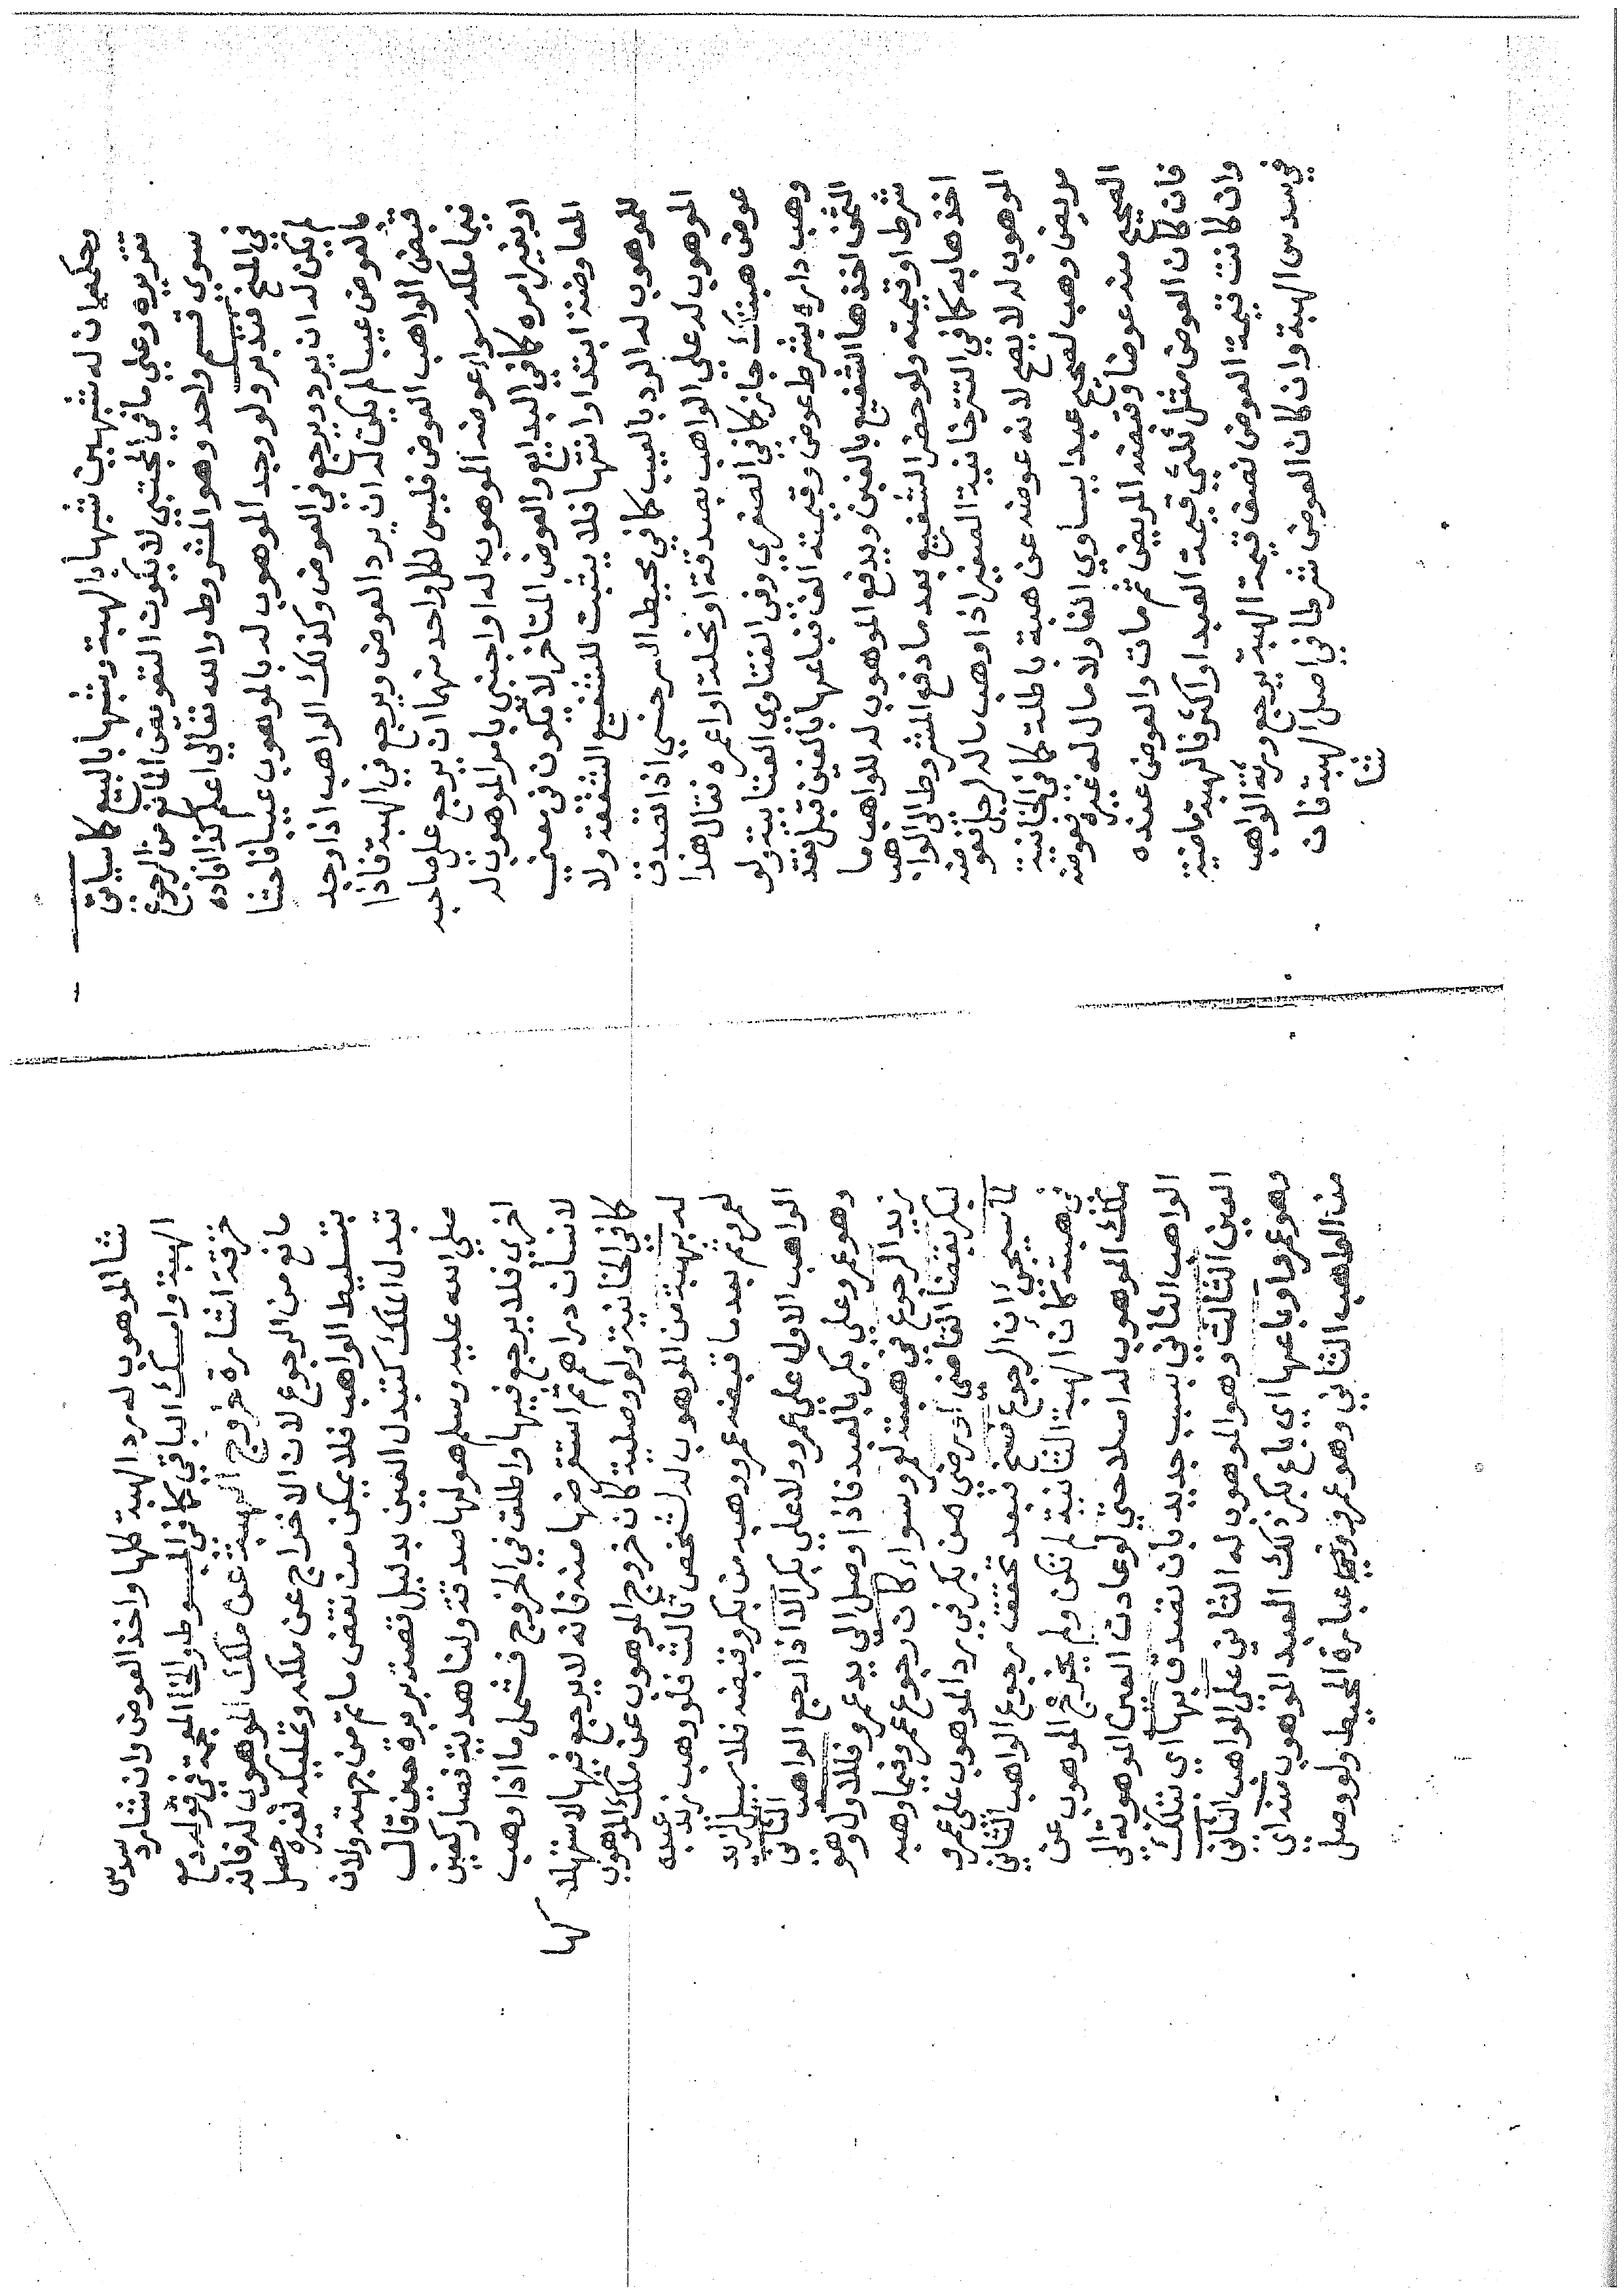 وحكمه ان له شبهين شبها بالهبة وشبها بالبيع كما سياتي
تقريره وعلي ما في المجتبي لا يكون التعويض المانع من الرجوع
سوي قسم واحد وهو المشروط والله تعالي اعلم كذا افاده
في المنح فتدبر ولو وجد الموهوب له بالموهوب عيبا فاحشا
لم يكن له ان يرد ويرجع في العوض وكذلك الواهب اذا وجد
بالعوض عيبا لم يكن له ان يرد العوض ويرجع في الهبة فاذا
قبض الواهب العوض فليس لكل واحد منهما ان يرجع علي صاحبه
فيما ملكه سواء عوضه الموهوب له او اجنبي بامر الموهوب له
او بغير امره كما في البدايع والعوض المتاخر لا تكون في معني
المعاوضة ابتداء وانتها فلا يثبت للشفيع الشفعة ولا
للموهوب له الرد بالعيب كما في محيط السرخسي اذا تصدق
الموهوب له علي الواهب بصدقة او نحلة او اعمره فقال هذا
عوض هبتك جاز كما في الصغري وفي الفتاوي العتابية ولو
وهب داره بشرط عوض وقيمته الف فباعها بالفين قبل نقد
الثمن اخذها الشفيع بالفين ويدفع الموهوب له للواهب ما
شرط او قيمته ولو حضر الشفيع بعد ما دفع المشروط الي الواهب
اخذها به كما في التترخانية الصغير اذا وهب ماله لرجل فعوضه
الموهوب له لا يصح لانه عوضه عن هبة باطلة كما في الخانية
مريض وهب لصحيح عبدا يساوي الفا ولا مال له غيره فعوضه
الصحيح منه عوضا وقبضه المريض ثم مات والعوض عنده
فان كان العوض مثل ثلثي قيمة العبد او اكثر فالهبة ماضية
وان كانت قيمة العوض نصف قيمة الهبة يرجع ورثة الواهب
في سدس الهبة وان كان العوض شرطا في اصل الهبة فان
شا
شا الموهوب له رد الهبة كلها واخذ العوض وان شا رد سدس
الهبة وامسك الباقي كما في المبسوط والخا المعجمة في قوله دمع
خزقة اشارة خروج الهبة عن ملك الموهوب له فانه
مانع من الرجوع لان الاخراج عن ملكه وتمليكه لغيره حصل
بتسليط الواهب فلا يمكن من نقض ما تم من جهته ولان
تبدل الملك كتبدل العين بدليل قصة بريرة حين قال
صلي الله عليه وسلم هو لها صدقة ولنا هدية فصار كعين
اخري فلا يرجع فيها واطلق في الخروج فشمل ما اذا وهب
لانسان دراهم ثم استقرضها منه فانه لا يرجع فيها لاستهلا
كها
كما في الخانية ولو وصلية كان خروج الموهوب عن ملك الموهوب
له بهبة من الموهوب له لشخص ثالث فلو وهب زيد عبده
لعمرو ثم بعد ما قبضه عمرو وهب من بكر وقبضه فلا سبيل لزيد
الواهب الاول علي عمرو ولا علي بكر الا اذا رجع الواهب الثاني
وهو عمرو علي بكر بالعبد فاذا وصل الي يد عمرو فللاول وهو
زيد الرجوع في هبته لعمرو سواء كان رجوع عمرو فيما وهبه
لبكر بقضا القاضي او برضي من بكر في رد الموهوب علي عمرو
لما سيجئ ان الرجوع فسخ فبعد تحقق رجوع الواهب الثاني
في هبته كان الهبة الثانية لم تكن ولم يخرج الموهوب عن
ملك الموهوب له اصلا حتي لو عادت العين الموهوبة الي
الواهب الثاني بسبب جديد بان تصدق بها اي بتلك
العين الثالث وهو الموهوب له الثاني علي الواهب الثاني
وهو عمرو او باعها اي باع بكر ذلك العبد الموهوب منه اي
من الواهب الثاني وهو عمرو وفي عبارة المحيط ولو وصل